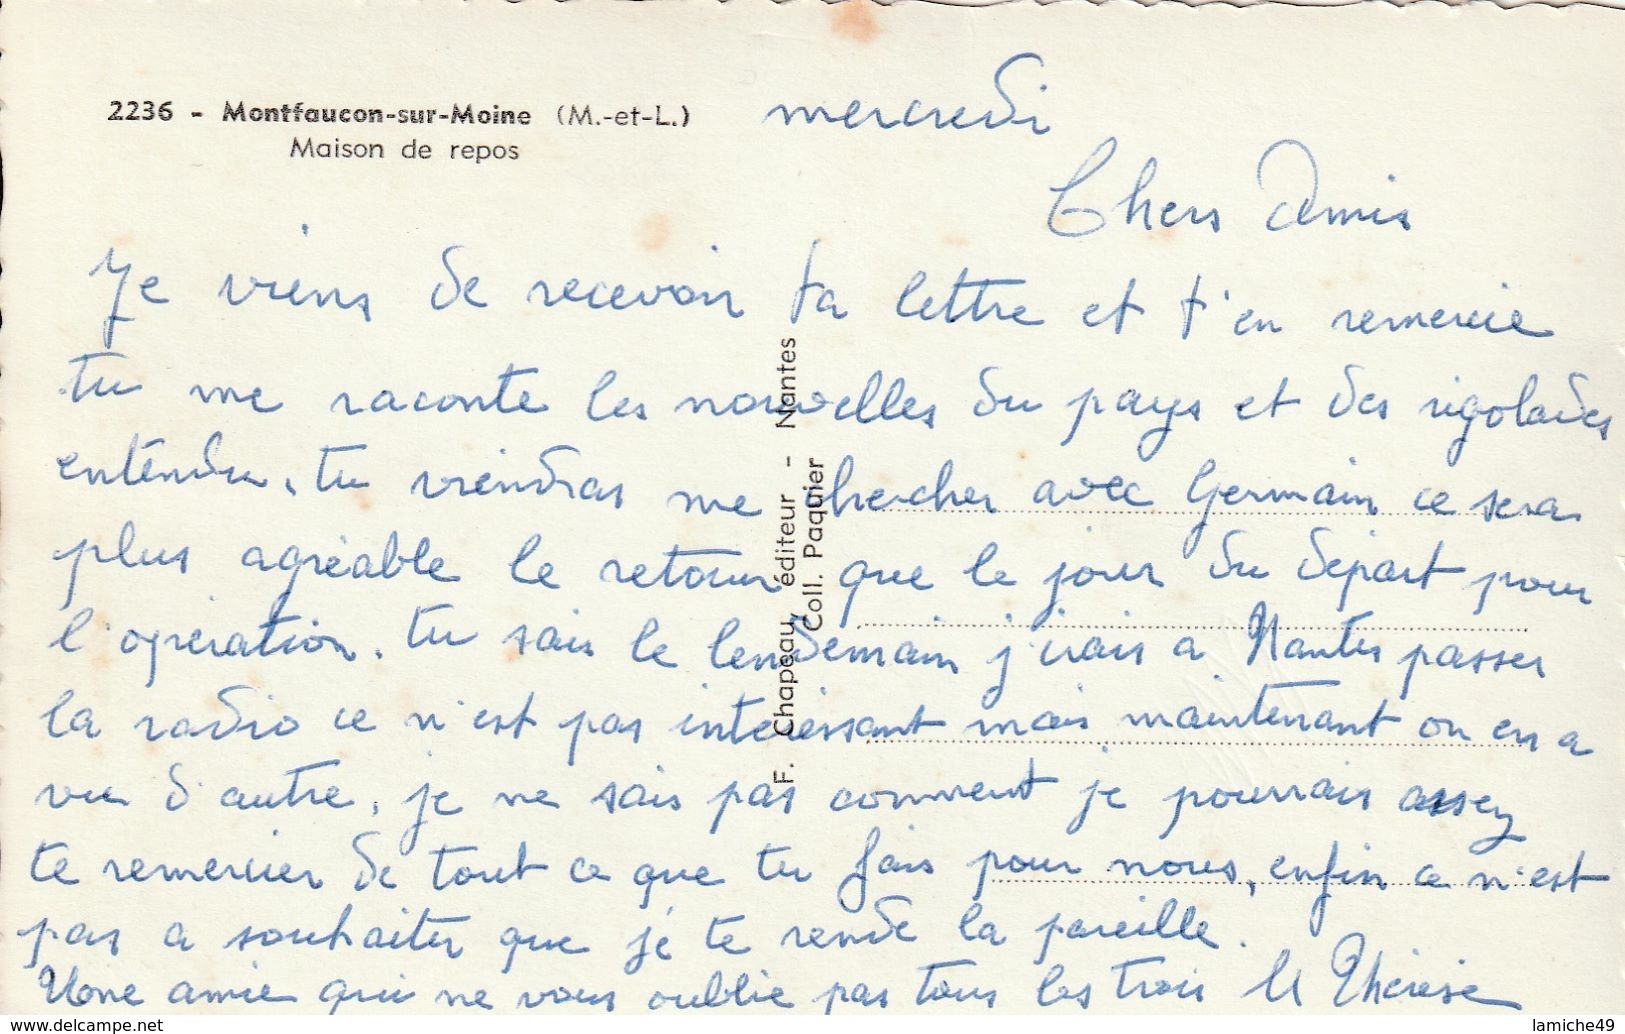 2236 - Montfaucon-sur-Moine (M.-et-L.)
Maison de repos
mercredi
Chers Amis
Je viens de recevoir ta lettre et t'en remercie
tu me raconte les nouvelles du pays et des rigolades
entendu. tu viendras me chercher avec Germain ce sera
plus agréable le retour que le jour du départ pour
l'opération. tu sais le lendemain j'irais a Nantes passer
la radio ce n'est pas intéressant mais maintenant on en a
vu d'autre, je ne sais pas comment je pourrais assez
te remercier de tout ce que tu fais pour nous, enfin ce n'est
pas a souhaiter que je te rende la pareille.
Une amie qui ne vous oublie pas tous les trois M Thérèse
F. Chapeau, éditeur - Nantes
Coll. Paquier
lamiche49
http://www.delcampe.net